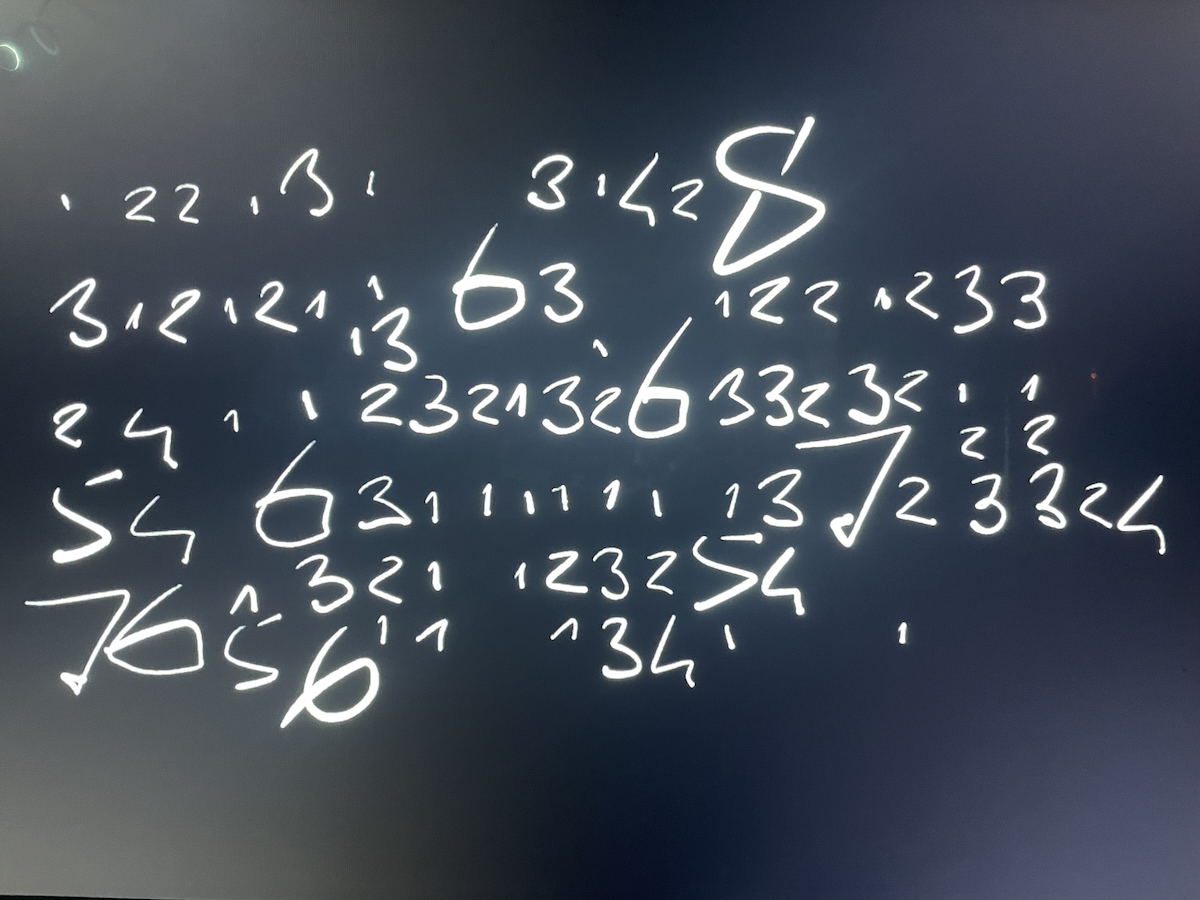 1 22 1 3 1 3 1 4 2 8
3 1 2 1 2 1 1 1 3 6 3 1 2 2 1 2 3 3
2 4 1 1 2 3 2 1 3 2 1 6 3 3 2 3 2 1 1
2 2
5 4 6 3 1 1 1 1 1 1 1 3 7 2 3 3 2 4
1 3 2 1 1 2 3 2 5 4
7 6 5 6 1 1 1 3 4 1 1